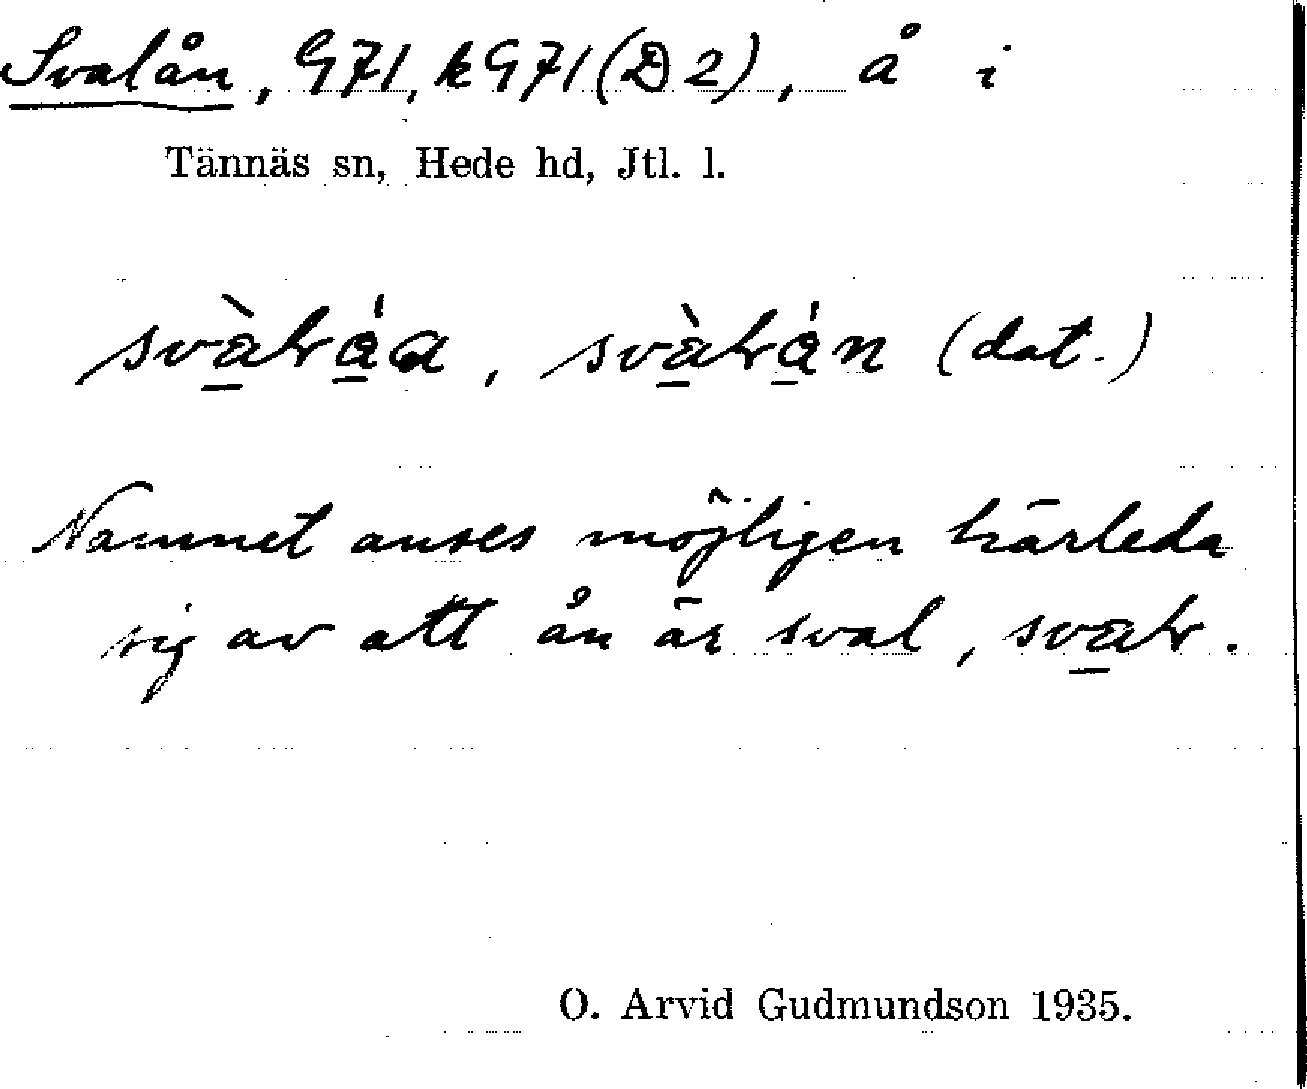 Svalån, G71, k G71 (D2), å i
Tännäs sn, Hede hd, Jtl. l.
(dat.)
Namnet anses möjligen härleda
sig av att ån är sval,
O. Arvid Gudmundson 1935.